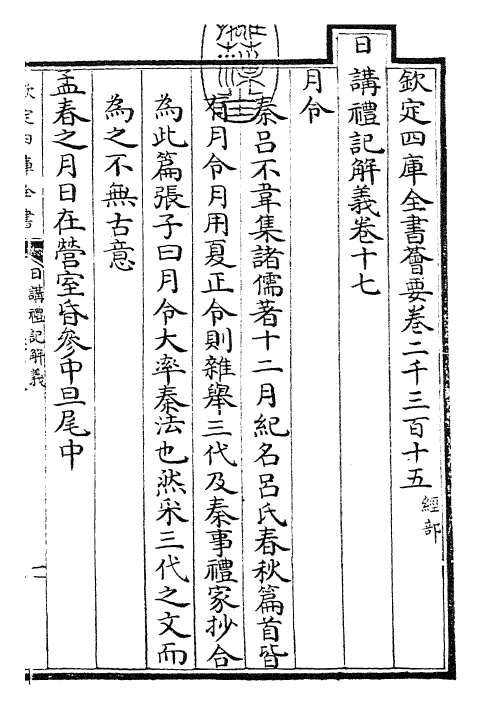 欽定四庫全書薈要卷二千三百十五 經部
日講禮記解義卷十七
月令
秦呂不韋集諸儒著十二月紀名呂氏春秋篇首皆
有月令月用夏正令則雜舉三代及秦事禮家抄合
為此篇張子曰月令大率秦法也然采三代之文而
為之不無古意
孟春之月日在營室昏參中旦尾中
欽定四庫全書
日講禮記解義